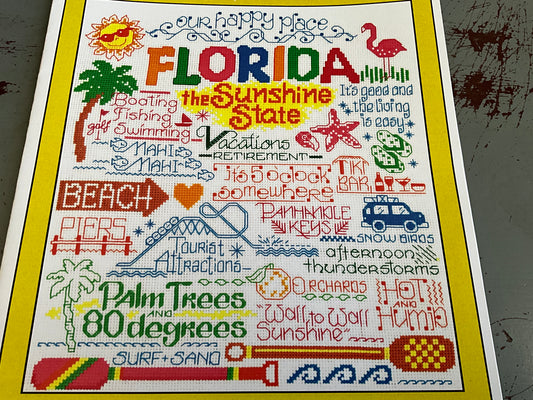 our happy place
FLORIDA
the Sunshine
State
It's good and
the living
is easy
Boating
Fishing
golf
Swimming
Vacations
RETIREMENT
MAHI
MAHI
it's 5 o'clock
somewhere
TIKI
BAR
BEACH
PIERS
PANHANDLE
KEYS
SNOW BIRDS
Tourist
Attractions
afternoon
thunderstorms
ORCHARDS
Palm Trees
AND
80 degrees
"Wall to Wall
Sunshine"
HOT
AND
HUMID
SURF + SAND